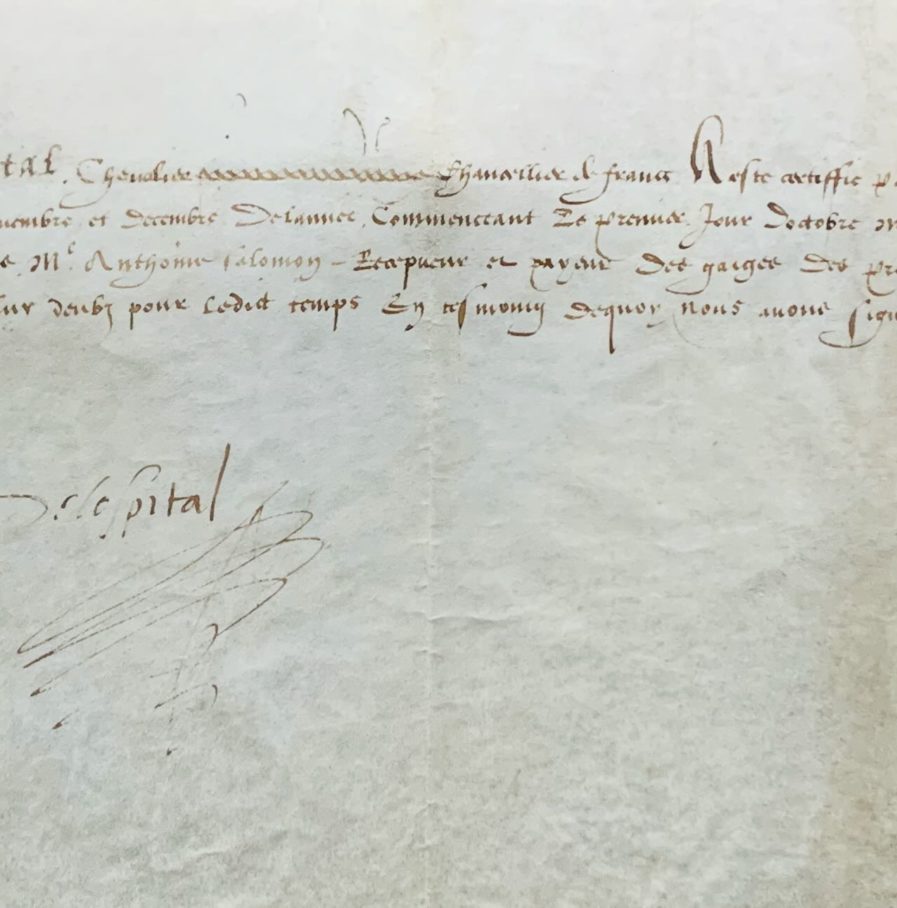 tal Chevalier Chancellier de france A este certiffie p
uembre et decembre Delannee Commenceant Le premier Jour doctobre m
e Me Anthoine salomon - Recepveur et payeur des gaiges des pr
ur deubz pour Ledict temps En tesmoing dequoy Nous auons sign
Delospital